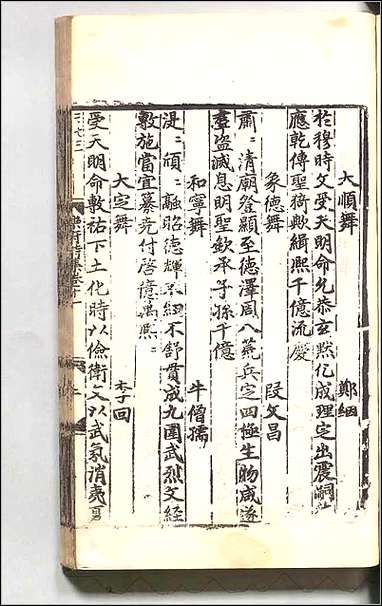 大順舞 鄭絪
於穆時文受天明命允恭玄黙化成理定出震嗣
應乾傳聖猗歟緝熈千億流慶
象德舞 段文昌
肅〻清廟登顯至德澤周八荒兵定四極生物咸遂
羣盗滅息明聖欽承子孫千億
和寧舞 牛僧孺
湜〻頎〻融昭德輝不紐不舒貫成九圍武烈文經
敷施當宜纂尭付啓億萬熈〻
大定舞 李回
受天明命敷祐下土化時以儉衛文以武氛消夷夏
三七三
樂府詩集卷十一